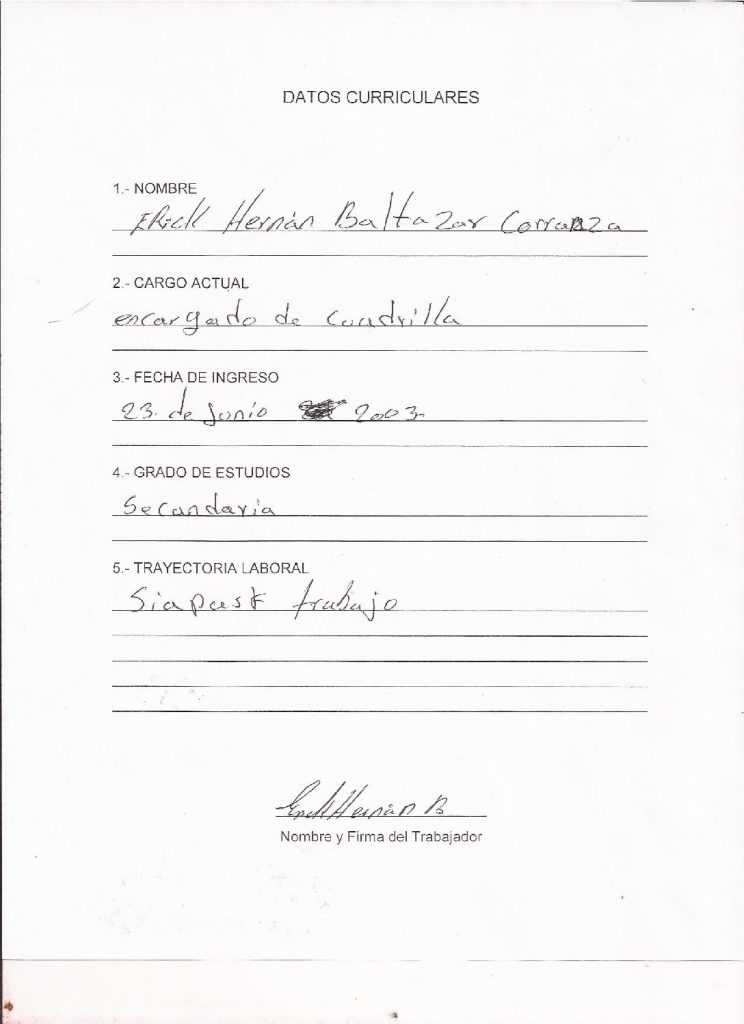 DATOS CURRICULARES
1.- NOMBRE
ERick Hernán Baltazar Corranza
2.- CARGO ACTUAL
encargado de Cuadrilla
3.- FECHA DE INGRESO
23. de Junio 2003
4.- GRADO DE ESTUDIOS
Secundaria
5.- TRAYECTORIA LABORAL
trabajo
Erick Hernán B
Nombre y Firma del Trabajador